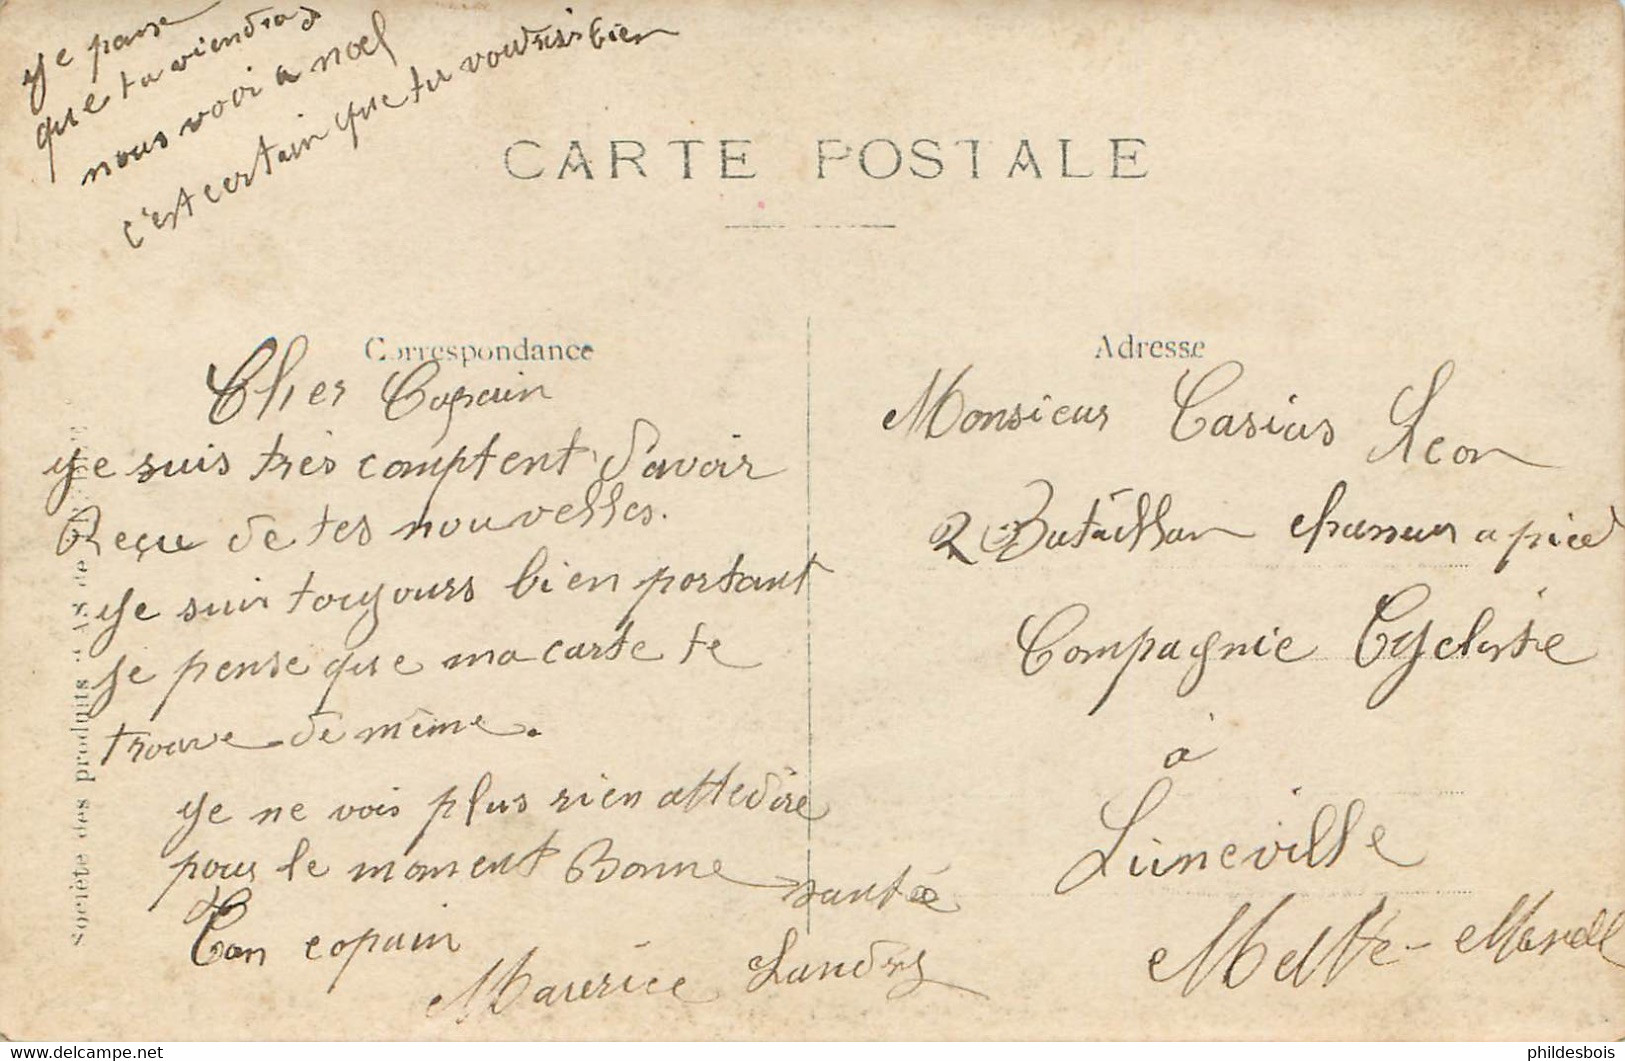 Je panse
que tu viendras
nous voir a noel
c'est certain que tu voudrais bien
CARTE POSTALE
Correspondance
Cher Copain
Je suis très comptent d'avoir
Reçu de tes nouvelles.
Je suis toujours bien portant
Je pense que ma carte te
trouve de même.
Je ne vois plus rien attedire
pour le moment Bonne santée
Ton copain
Maurice Landry
Adresse
Monsieur Casius Léon
2 Bataillon chasseur a pied
Compagnie Cycliste
à
Lunéville
Mette-Moselle
société des produits As de
delcampe.net
phildesbois